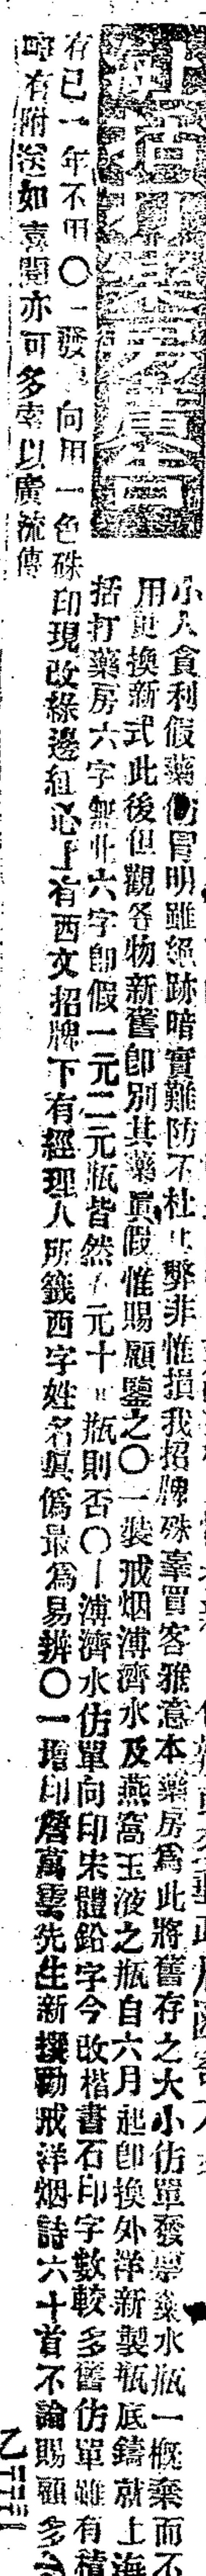 小人貪利假藥仿冒明雖絕跡暗實難防不杜其弊非惟損我招牌殊辜買客雅意本藥房爲此將舊存之大小仿單發票藥水瓶一概棄而不
用更換新式此後但觀各物新舊卽別其藥眞假惟賜顧鑒之〇一裝戒烟溥濟水及燕窩玉液之瓶自六月起卽換外洋新製瓶底鑄就上海
括打藥房六字無此六字卽假一元二元瓶皆然 元十 瓶則否〇一溥濟水仿單向印宋體鉛字今改楷書石印字數較多舊仿單雖有積
有已一年不用〇一發 向用一色硃印現改綠邊紅心上有西文招牌下有經理人所籤西字姓名眞僞最爲易辨〇一增印詹萬雲先生新撰勸戒洋烟詩六十首不論賜顧多
有附送如喜閱亦可多索以廣流傳